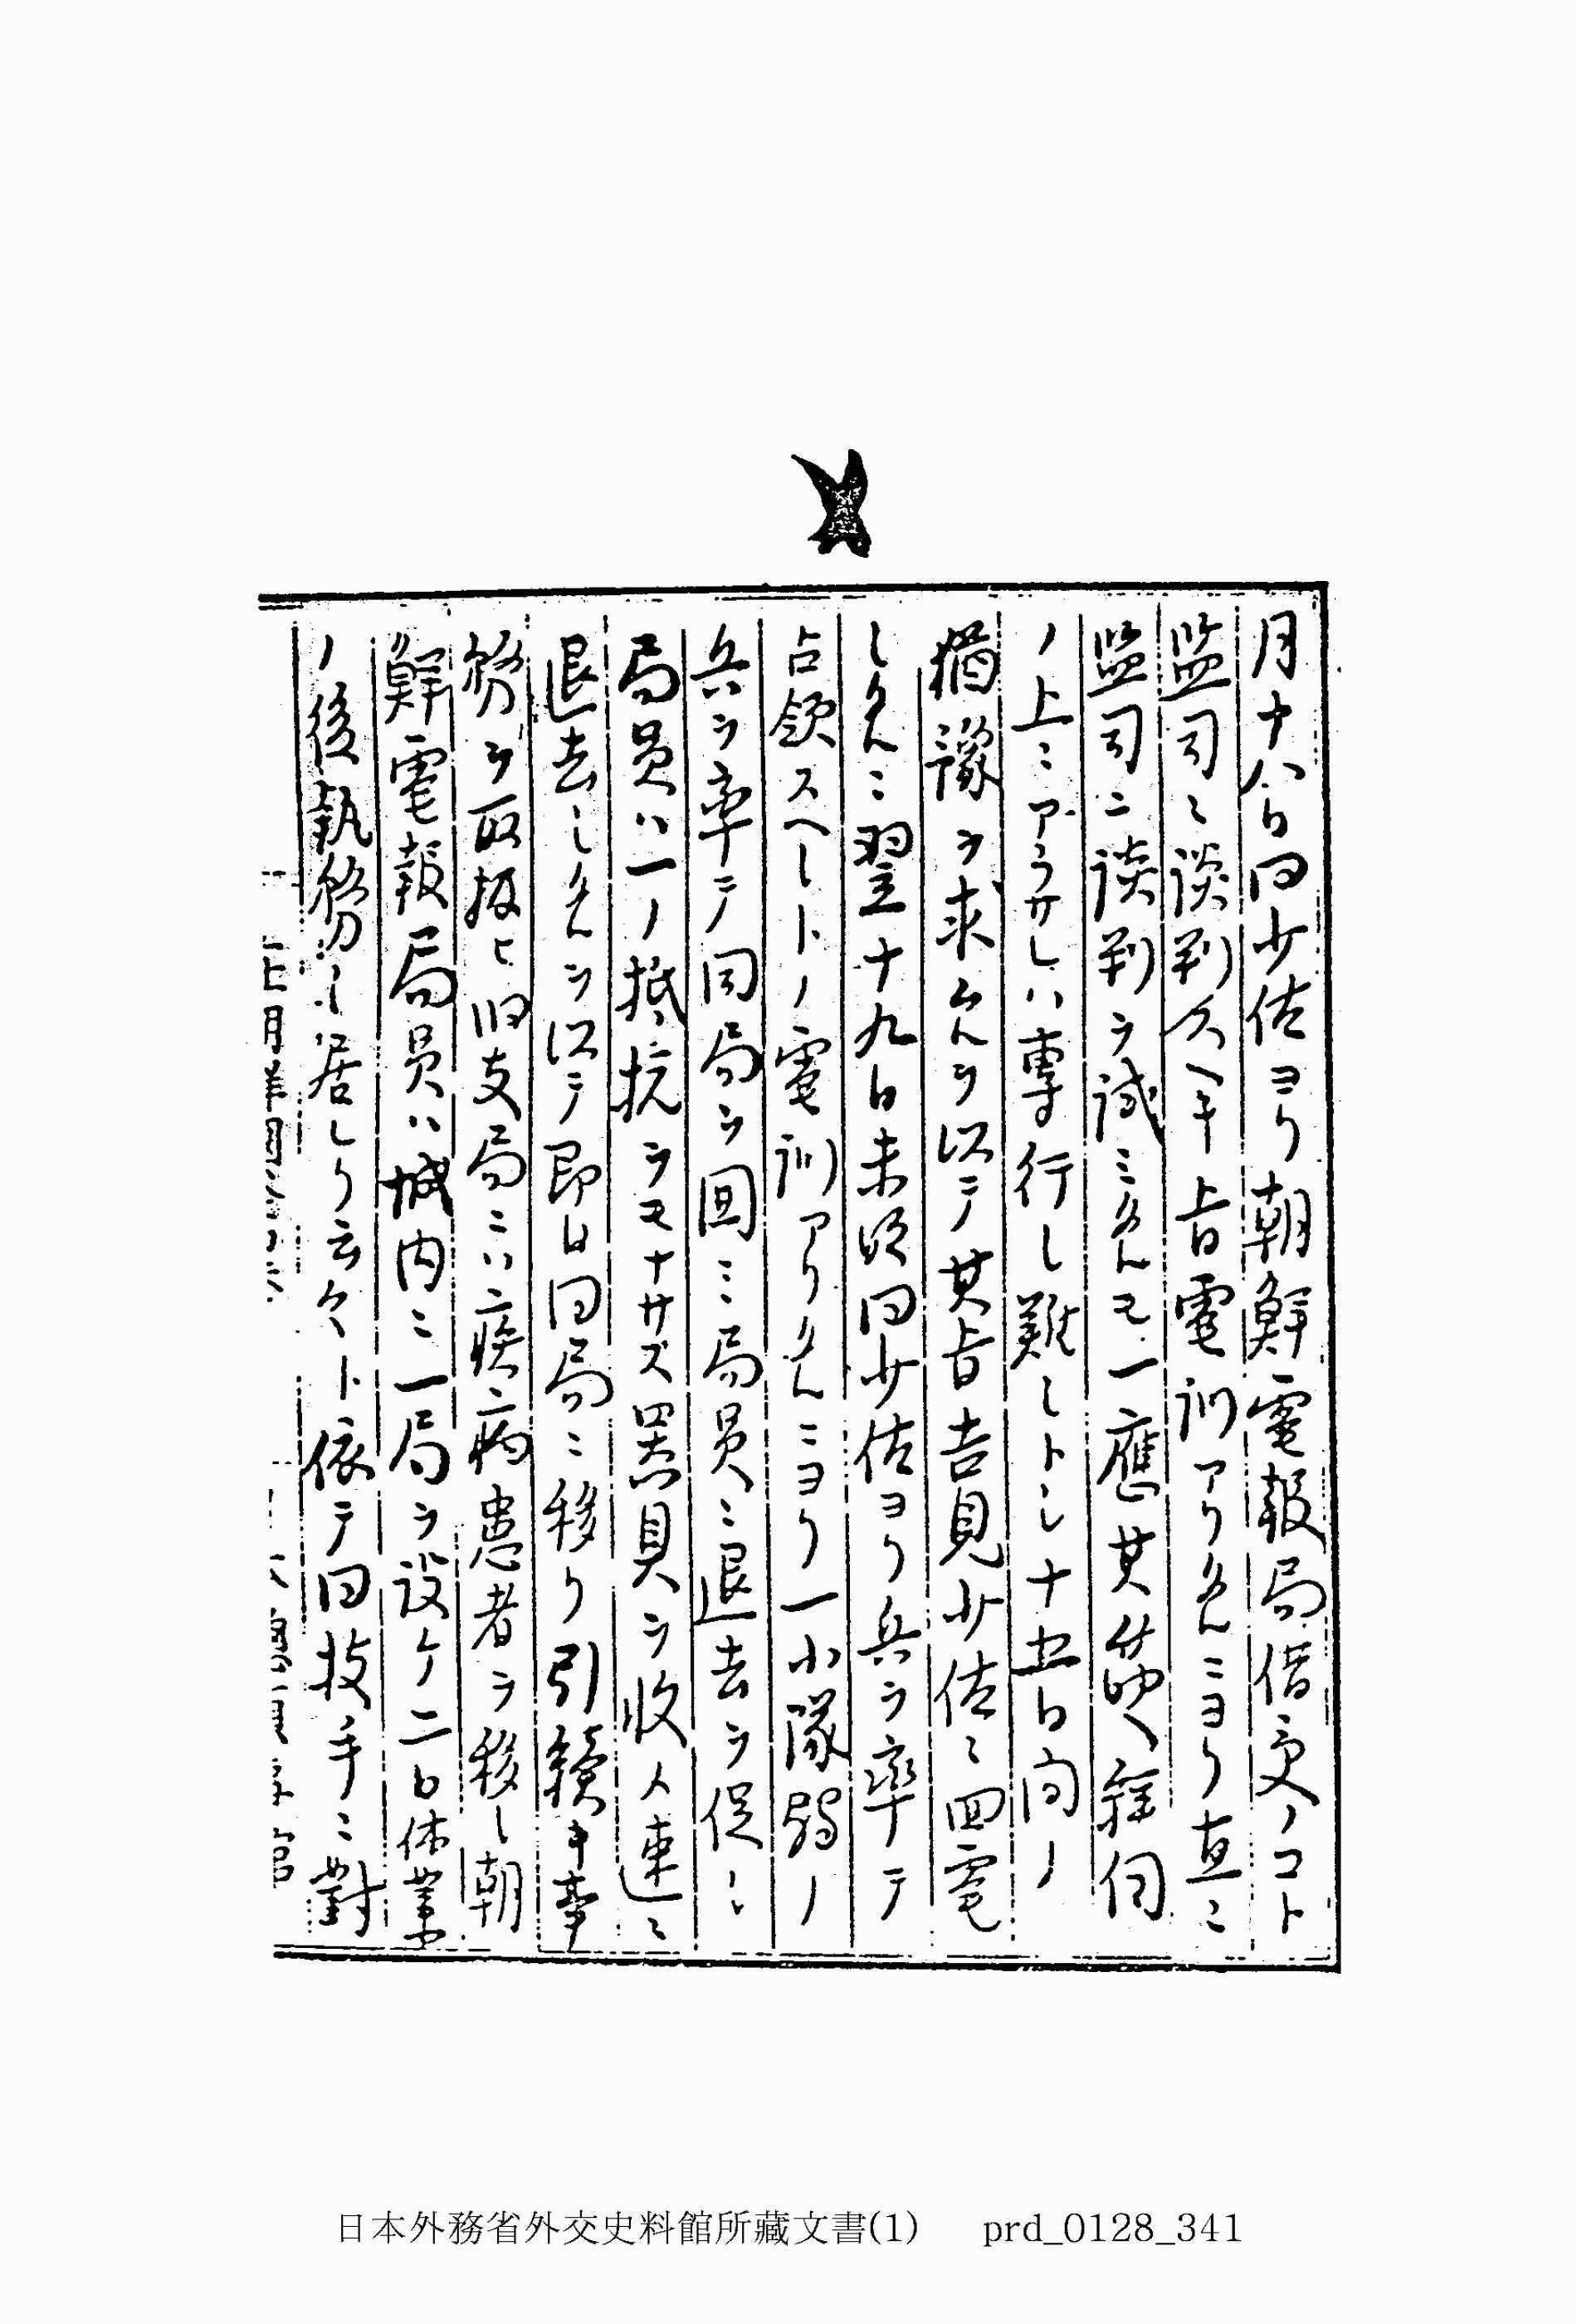 月十八日同少佐ヨリ朝鮮電報局借受ノコト
監司ニ談判スヘキ旨電訓アリタルニヨリ直ニ
監司ニ談判ヲ試ミタルモ一應其筋ヘ經伺
ノ上ニアラサレハ専行シ難シトシ十五日間ノ
猶豫ヲ求タルヲ以テ其旨吉見少佐ニ回電
シタルニ翌十九日未明同少佐ヨリ兵ヲ率テ
占領スヘシトノ電訓アリタルニヨリ一小隊弱ノ
兵ヲ率テ同局ヲ囲ミ局員ニ退去ヲ促シ
局員ハ一ノ抵抗ヲモナサズ器具ヲ收メ速ニ
退去シタルヲ以テ即日同局ニ移リ引續キ事
務ヲ取扱ヒ旧支局ニハ疾病患者ヲ移シ朝
鮮電報局員ハ城内ニ一局ヲ設ケ二日休業
ノ後執務シ居レリ云々ト依テ同技手ニ對
日本外務省外交史料館所藏文書(1) prd_0128_341